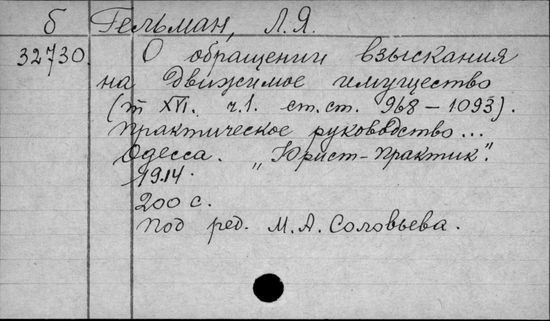 б Гельман, Л.Я.
32730. О обращении взыскания
на движимое имущество
(т XVI. ч.1. ст.ст. 968-1093).
практическое руководство...
Одесса. „Юрист-практик".
1914.
200 с.
Под ред. М.А. Соловьева.